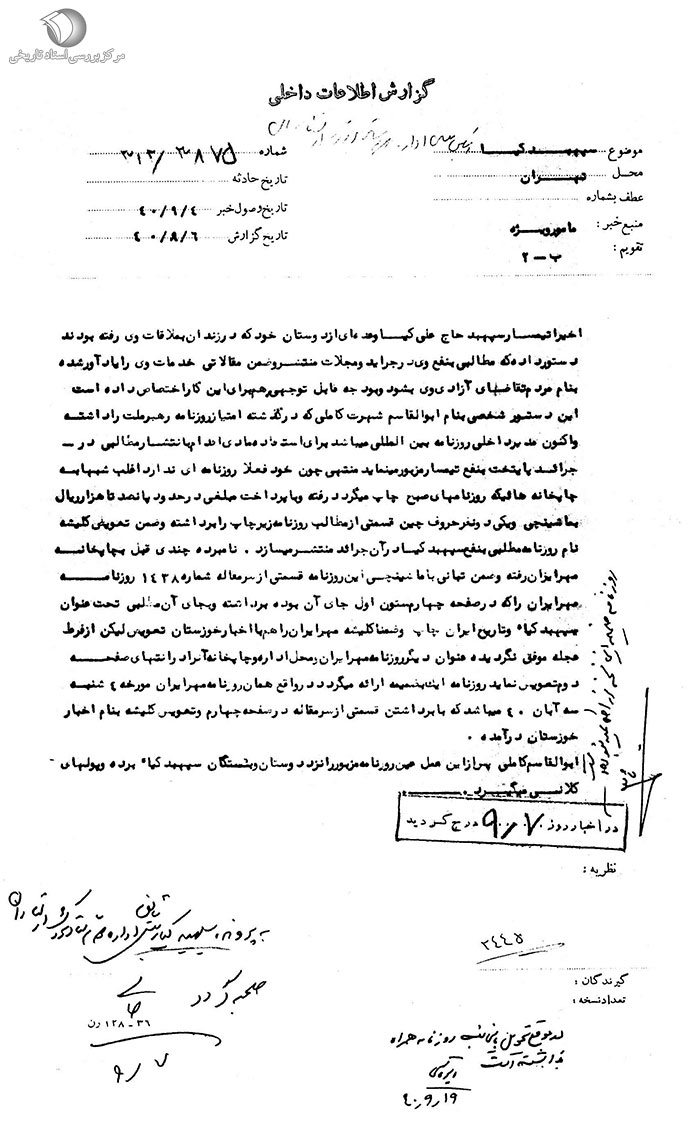 مرکز بررسی اسناد تاریخی
گزارش اطلاعات داخلی
موضوع سپهبد کیا
شماره ۳۱۲/ ۳۸۷۵
محل تهران
تاریخ حادثه
عطف بشماره
تاریخ وصول خبر ۴۰/۹/۴
منبع خبر : مامور ویژه
تاریخ گزارش ۴۰/۸/۶
تقویم : ب – ۲
اخیرا تیمسار سپهبد حاج علی کیا وعده‌ای از دوستان خود که در زندان بملاقات وی رفته بودند
دستور داده که مطالبی بنفع وی در جراید ومجلات منتشر وضمن مقالاتی خدمات وی را یادآور شده
بنام مردم تقاضای آزادی وی بشود وبودجه قابل توجهی هم برای این کار اختصاص داده است
این دستور شخصی بنام ابوالقاسم شهرت کاملی که در گذشته امتیاز روزنامه رهبر ملت را داشته
واکنون مدیر داخلی روزنامه بین المللی میباشد برای استفاده مادی اقدام بانتشار مطالبی در –
جرائد پایتخت بنفع تیمسار مزبور مینماید منتهی چون خود فعلا روزنامه ای ندارد اغلب شبها به
چاپخانه هائیکه روزنامهای صبح چاپ میگردد رفته وبا پرداخت مبلغی در حدود پانصد تا هزار ریال
بماشینچی ویکی دو نفر حروف چین قسمتی از مطالب روزنامه زیر چاپ را برداشته وضمن تعویض کلیشه
نام روزنامه مطلبی بنفع سپهبد کیا در آن جرائد منتشر میسازد . نامبرده چندی قبل بچاپخانه
مهر ایران رفته وضمن تبانی با ماشینچی این روزنامه قسمتی از سر مقاله شماره ۱۴۳۸ روزنامه
مهر ایران را که در صفحه چهارم ستون اول جای آن بوده برداشته وبجای آن مطلبی تحت عنوان
سپهبد کیا و تاریخ ایران چاپ وضمنا کلیشه مهر ایران را هم با اخبار خوزستان تعویض لیکن از فرط
عجله موفق نگردیده عنوان دیگر روزنامه مهر ایران ومحل اداره وچاپخانه آنرا در انتهای صفحه
دوم تعویض نماید روزنامه اینک بضمیمه ارائه میگردد در واقع همان روزنامه مهر ایران مورخه ۴ شنبه
سه آبان ۴۰ میباشد که با برداشتن قسمتی از سر مقاله در صفحه چهارم وتعویض کلیشه بنام اخبار
خوزستان درآمده .
ابوالقاسم کاملی پس از این عمل عین روزنامه مزبور را نزد دوستان وبستگان سپهبد کیا برده وپولهای
کلانی میگیرد .
در اخبار روز ۹۰/۷ درج گردید
نظریه :
۳۴۴۵
گیرندگان :
تعداد نسخه :
۳۶ – ۱۲۸ رن
۹/۷
۴۰/۹/۱۹